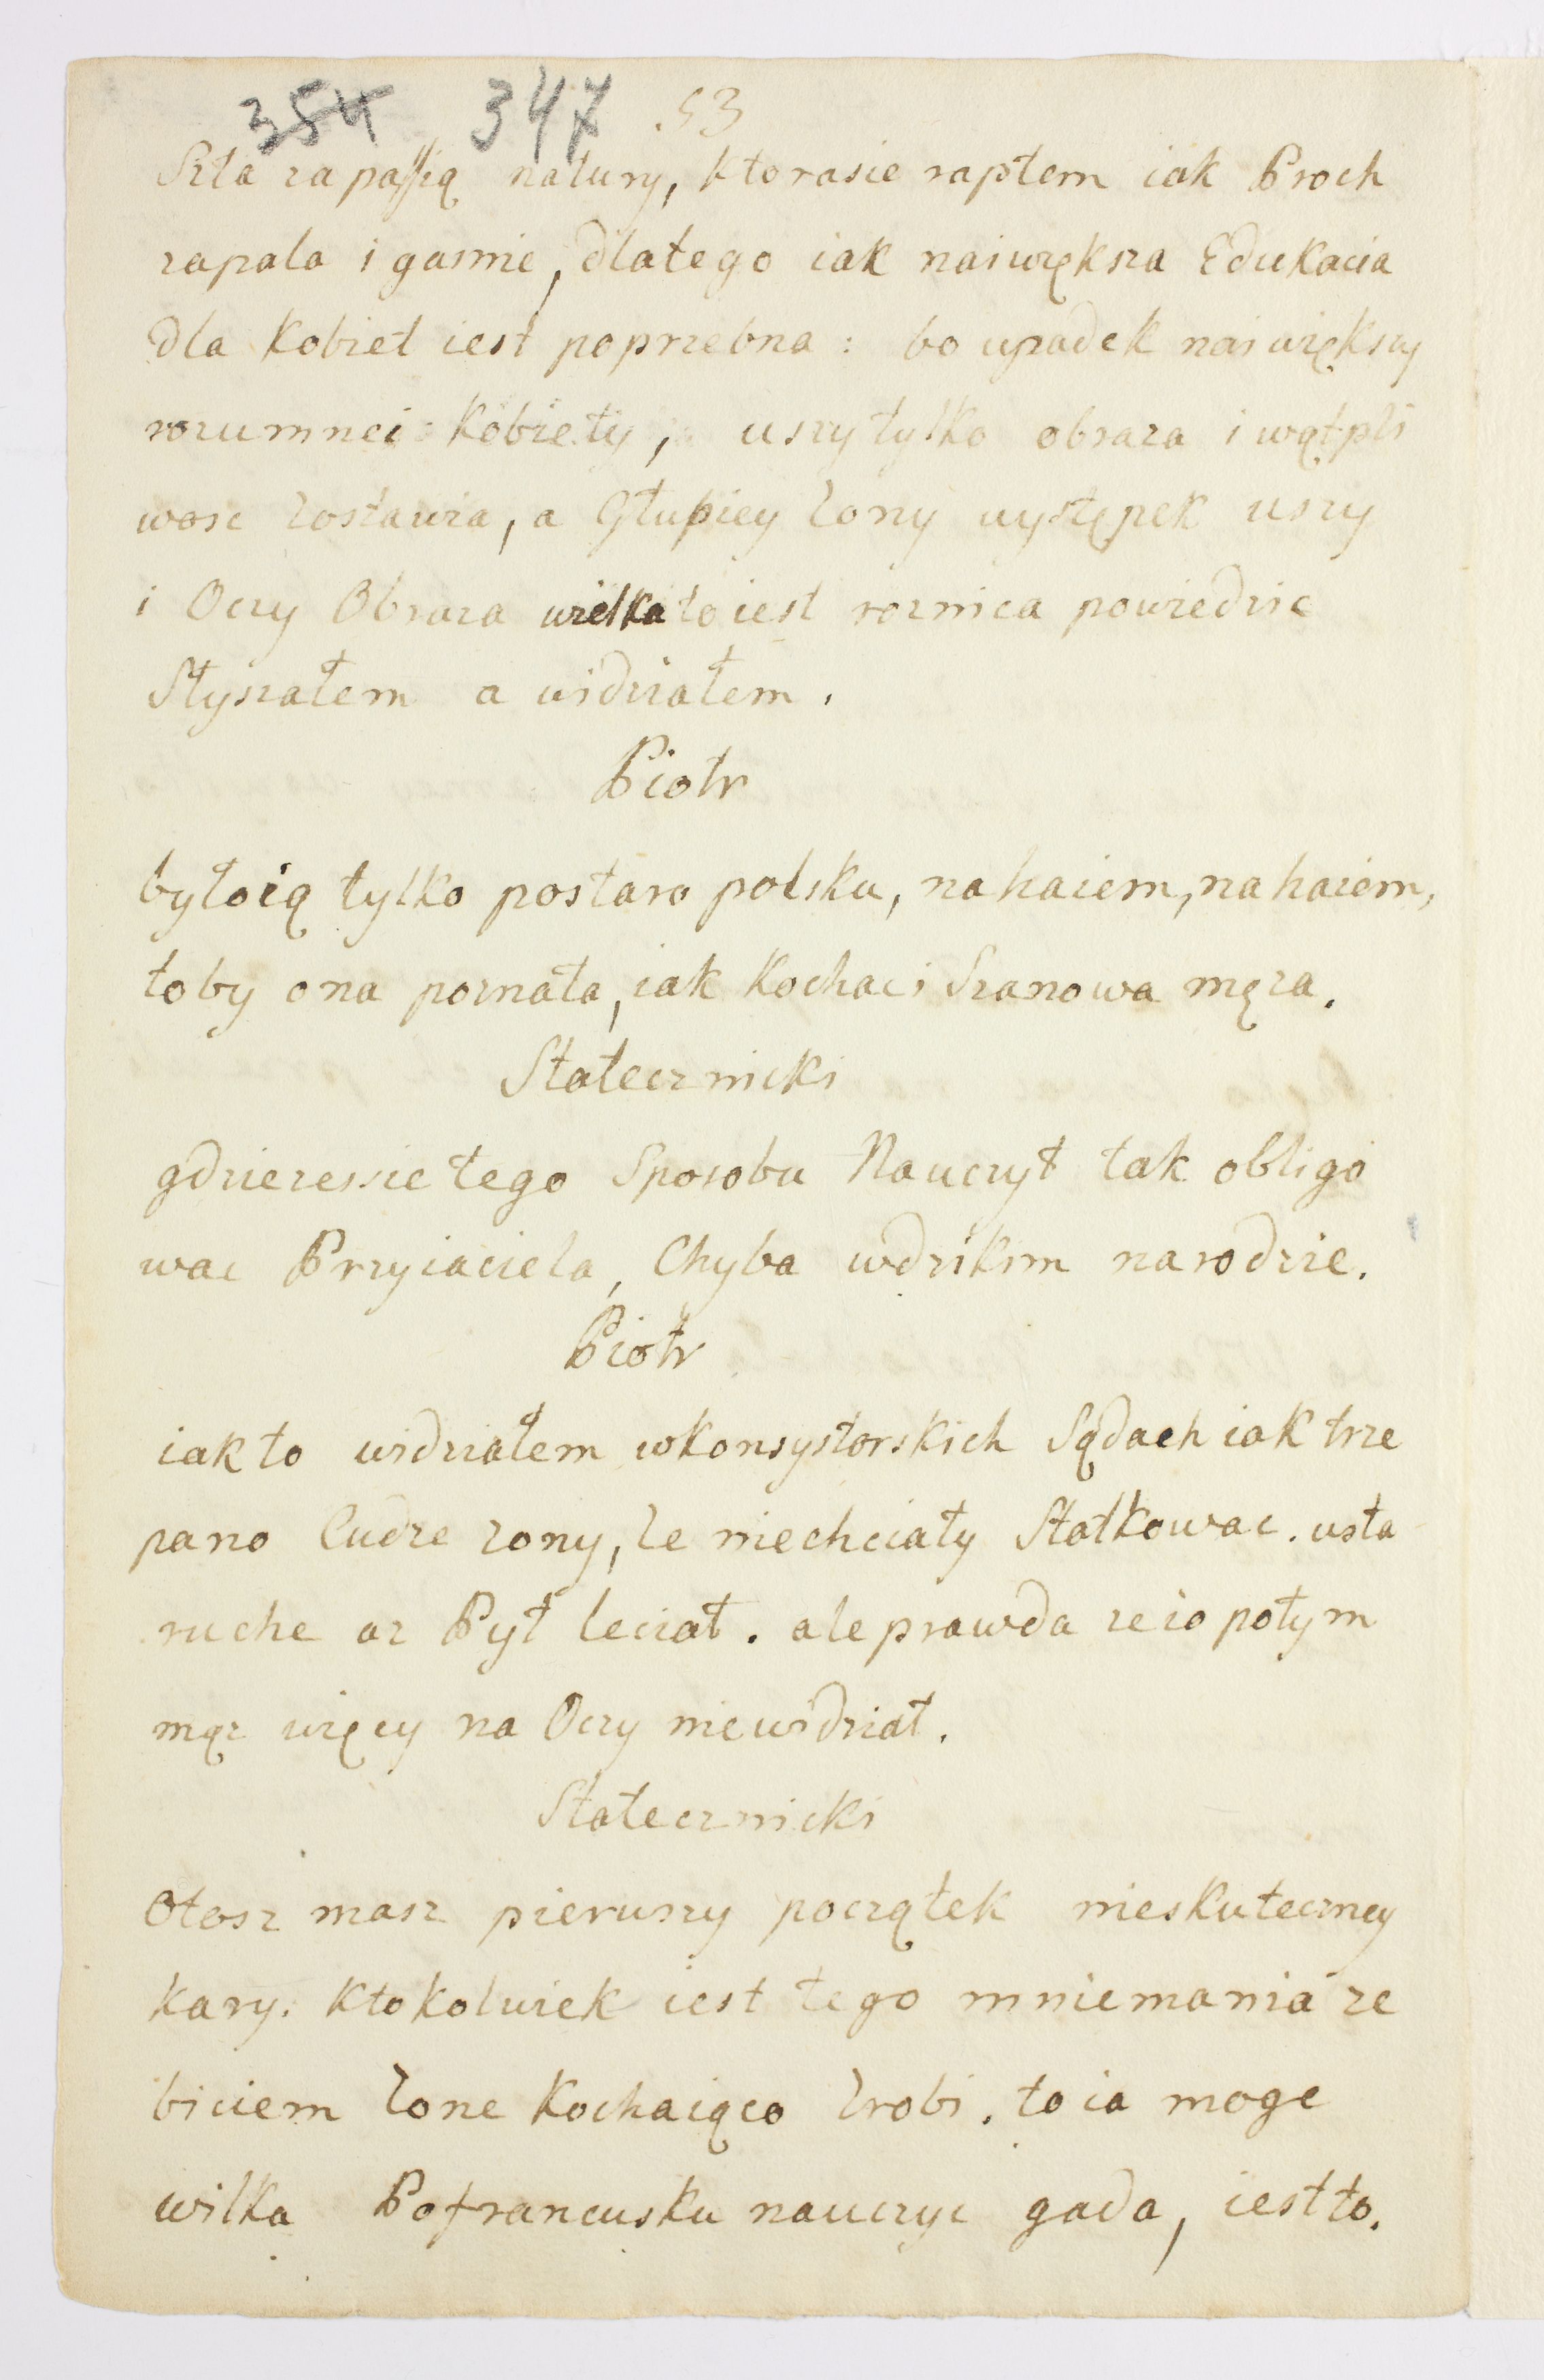 354 347 53
Szła za passią natury, ktorasie raptem iak Proch
zapala i gasnie, dlatego iak naiwrększa Edukacia
dla Kobiet iest poprzebna : bo upadek naiwiększy
rozumnei Kobiety, uszy tylko obraza i wątpli
wosc zostawia, a Głupiey zony występek uszy
i Oczy Obraza wielka to iest roznica powiedzic
Słyszałem a widziałem.
Piotr
byłoią tylko postaro polsku, nahaiem, nahaiem,
toby ona poznała, iak Kochac i Szanowa męza.
Statecznicki
gdziezessie tego Sposobu Nauczył tak obligo
wac Przyiaciela, Chyba wdzikim narodzie.
Piotr
iak to widziałem wkonsystorskich Sądach iak trze
pano Cudze zony, ze niechciały Statkowac. usta
ruche az Pył leciał. ale prawda zeio potym
mąz więcy na Oczy niewidział.
Statecznicki
Otosz masz pierwszy początek nieskuteczney
kary. Ktokolwiek iest tego mniemania ze
biciem zone Kochaiąco zrobi. to ia moge
wilka Pofrancusku nauczyc gada, iest to.